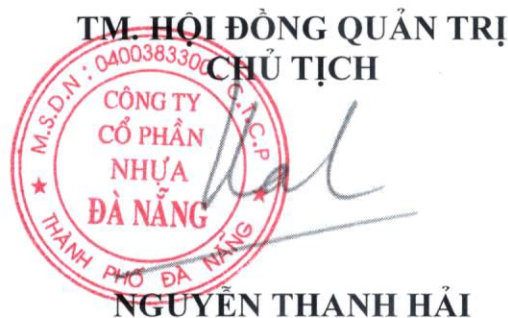 TM. HỘI ĐỒNG QUẢN TRỊ
CHỦ TỊCH
M.S.D.N: 0400383300 C.T.C.P
CÔNG TY
CỔ PHẦN
NHỰA
ĐÀ NẴNG
THÀNH PHỐ ĐÀ NẴNG
NGUYỄN THANH HẢI